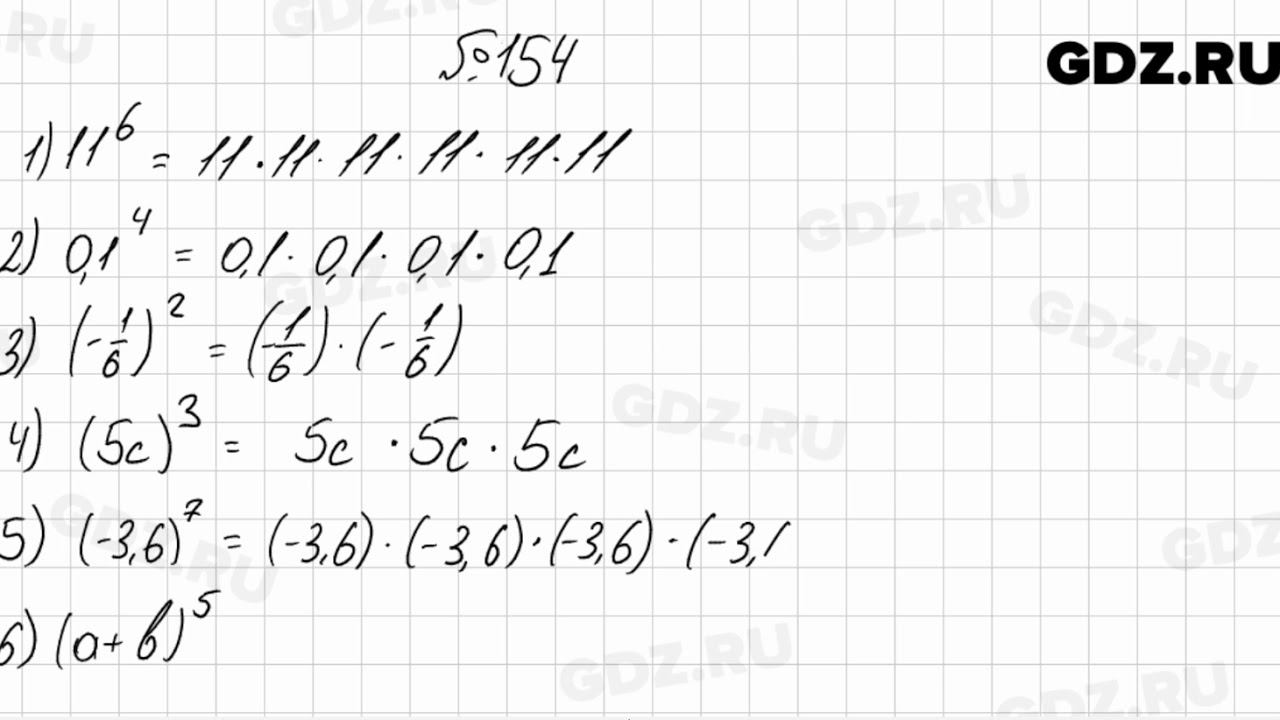 №154
GDZ.RU
1) 11^6 = 11 · 11 · 11 · 11 · 11 · 11
2) 0,1^4 = 0,1 · 0,1 · 0,1 · 0,1
3) (-1/6)^2 = (-1/6) · (-1/6)
4) (5c)^3 = 5c · 5c · 5c
5) (-3,6)^7 = (-3,6) · (-3,6) · (-3,6) · (-3,
6) (a+b)^5